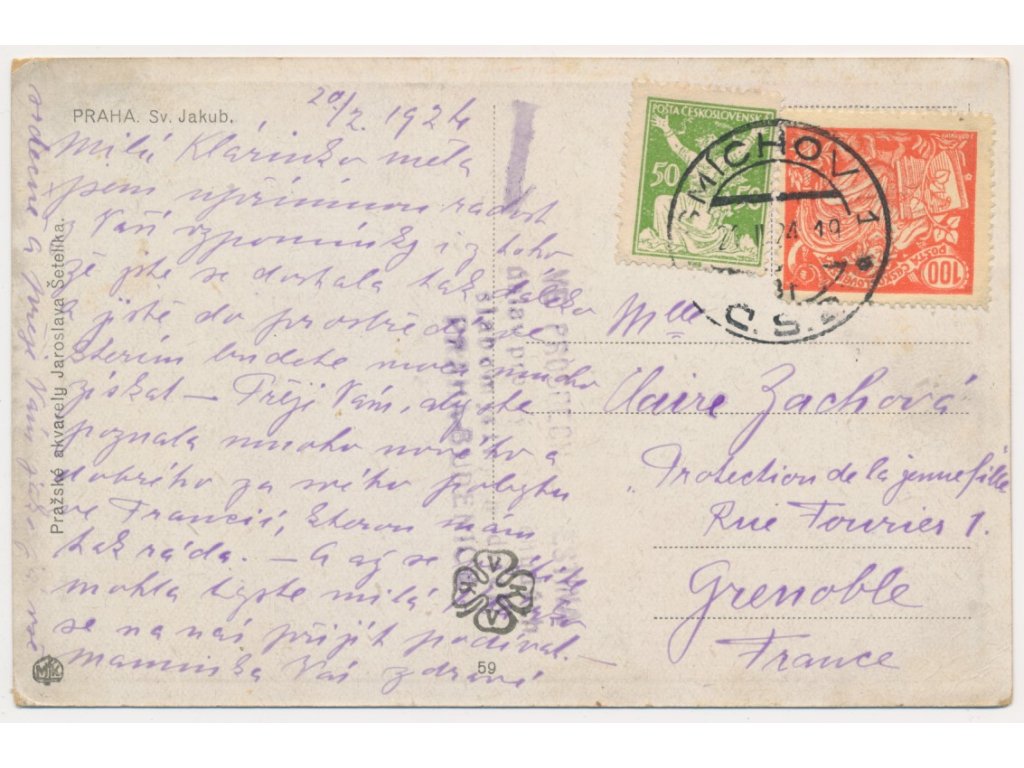 PRAHA. Sv. Jakub.
20/2. 1924
Milá Klárinko měla
jsem upřímnou radost
z Vaší vzpomínky i z toho
že jste se dostala tak daleko
a jistě do prostředí, ve
kterém budete moci mnoho
získat — Přeji Vám, abyste
poznala mnoho nového a
dobrého za svého pobytu
ve Francii, kterou mám
tak ráda. — A až se
mohla byste milá
se na nás přijít podívat. —
maminka Vás zdraví
srdečně a přeje Vám
Pražské akvarely Jaroslava Šetelíka.
59
POŠTA ČESKOSLOVENSKÁ
50 50
100
POŠTA ČESKOSLOVENSKÁ
SMÍCHOV 1
Č.S.R.
Mlle
Claire Zachová
"Protection de la jeune fille
Rue Fourier 1.
Grenoble
France
VKVV